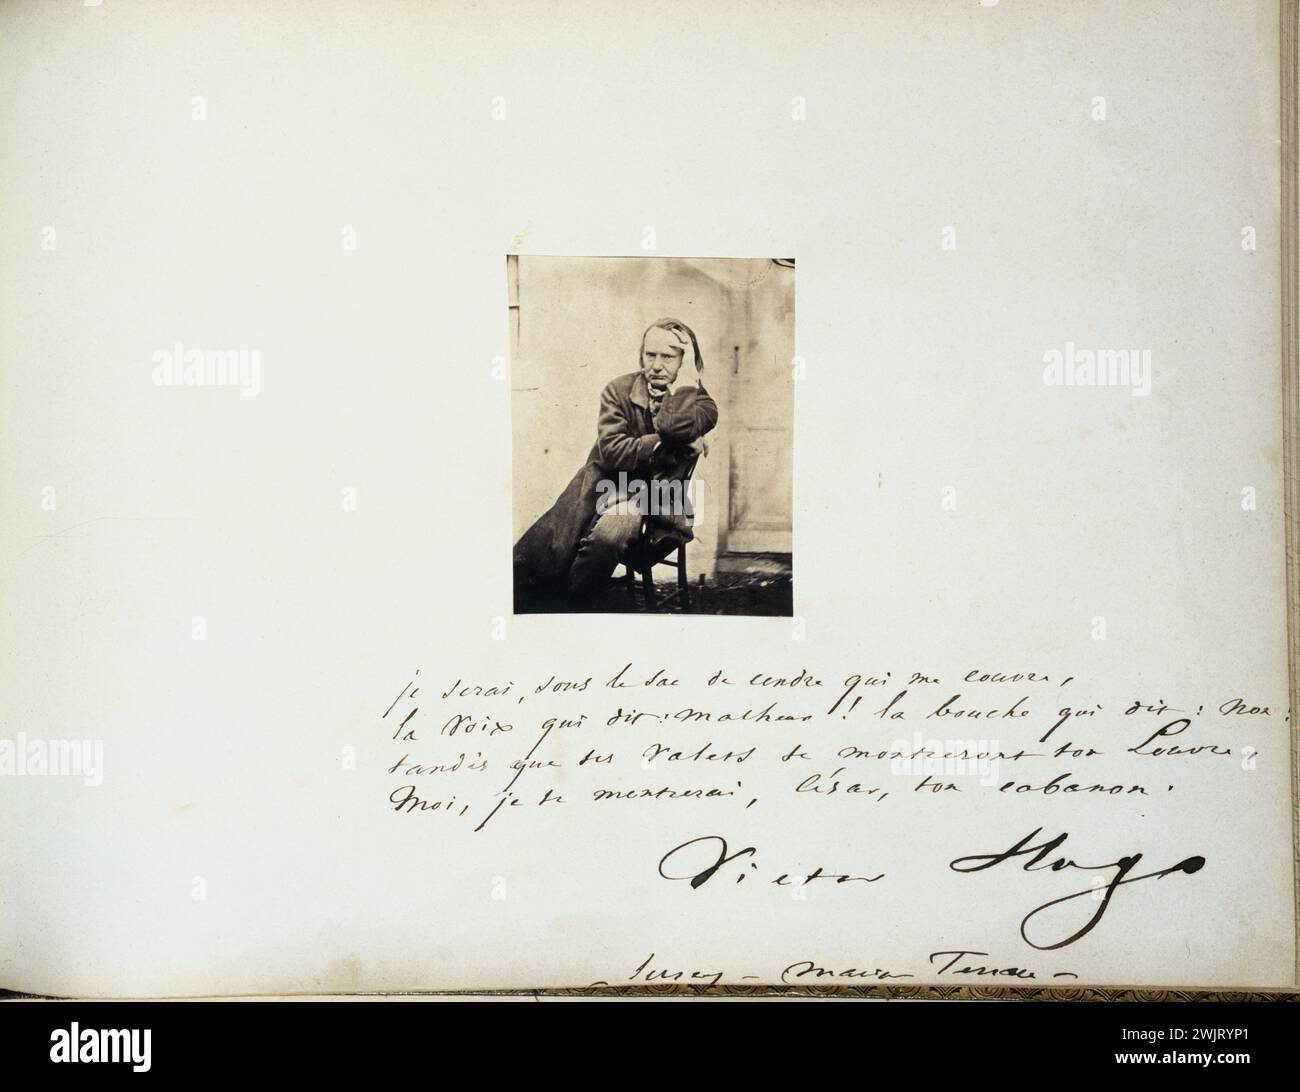 je serai, sous le sac de cendre qui me couvre,
la voix qui dit : malheur ! la bouche qui dit : non !
tandis que tes valets te montreront ton Louvre,
Moi, je te montrerai, César, ton cabanon.
Victor Hugo
Jersey - Marine Terrace -
alamy
alamy
alamy
Image ID: 2WJRYP1
www.alamy.com